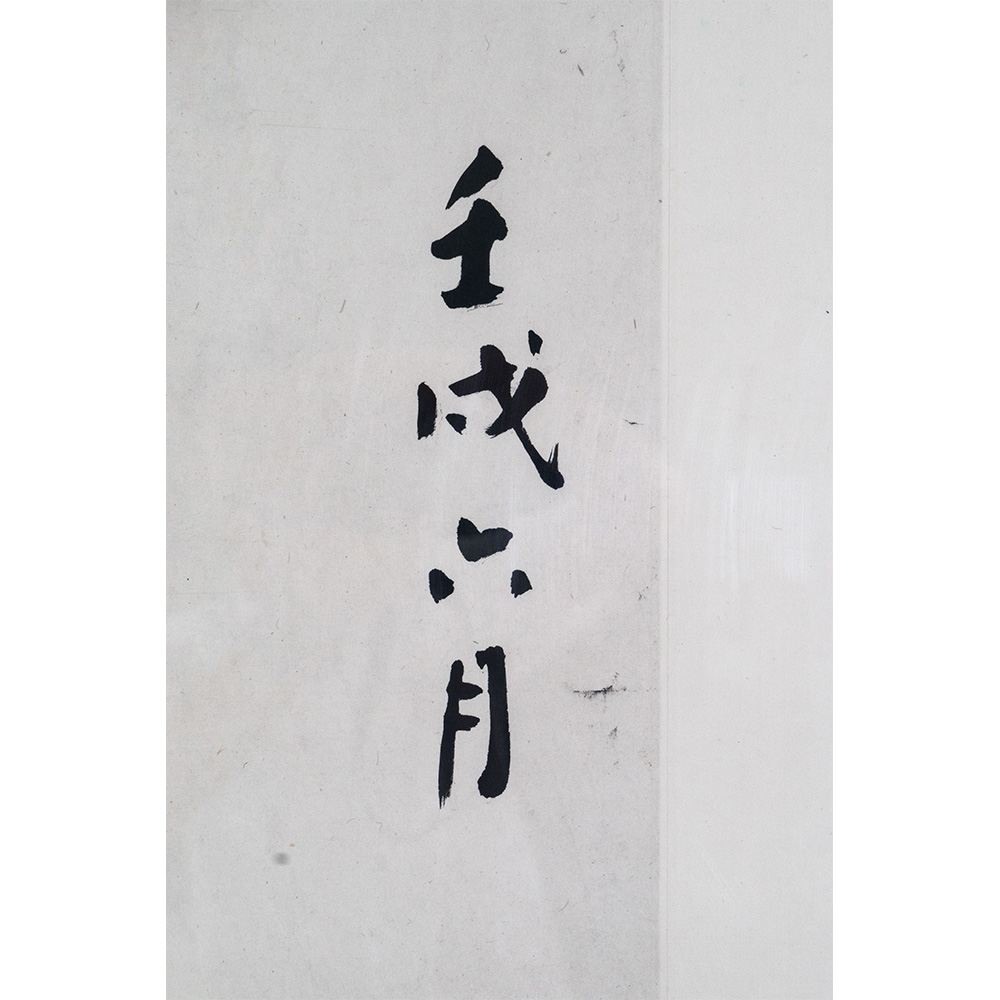 壬戌六月